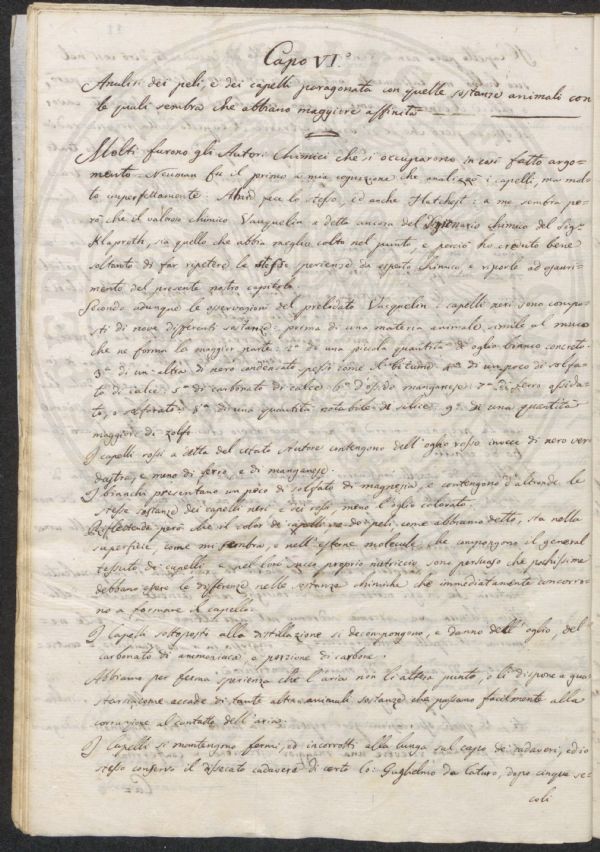 Capo VI.°
Analisi dei peli, e dei capelli paragonata con quelle sostanze animali con
le quali sembra che abbiano maggiore affinità
Molti furono gli Autori Chimici che si occuparono in così fatto argo-
mento. Neuman fu il primo a mia cognizione che analizzò i capelli, ma mol-
to imperfettamente: fece lo stesso, ed anche Hatchett: a me sembra pe-
rò che il valoroso chimico Vauquelin a detta ancora del chimico del Sig.
Klaproth, sia quello che abbia meglio colto nel punto, e perciò ho creduto bene
soltanto di far ripetere le stesse sperienze da esperto Chimico e riporle ad esauri-
mento del presente nostro capitolo.
Secondo adunque le osservazioni del prelodato Vauquelin i capelli neri sono compo-
sti di nove differenti sostanze: prima di una materia animale simile al muco
che ne forma la maggior parte: 2.° di una piccola quantità d'oglio bianco concreto.
3.° di un'altra di nero condensato come il bitume 4.° di un poco di solfa-
to di calce: 5.° di carbonato di calce 6.° d'ossido manganese: 7.° di ferro ossida-
to, o solforato: 8.° di una quantità notabile di silice: 9.° di una quantità
maggiore di zolfo.
I capelli rossi a detta del citato Autore contengono dell'oglio rosso invece di nero ver-
dastro, e meno di ferro e di manganese.
I bianchi presentano un poco di solfato di magnesia, e contengono d'altronde le
stesse sostanze dei capelli neri e dei rossi, meno l'oglio colorato.
Riflettendo però che il color de' capelli, e de' peli, come abbiamo detto, sta nella
superficie, come mi sembra, o nell'esterne molecule che compongono il general
tessuto dei capelli e nel loro succo proprio nutriccio, son persuaso che pochissime
debbano essere le differenze nelle sostanze chimiche che immediatamente concorro-
no a formare il capello.
I Capelli sottoposti alla distillazione si decompongono, e danno dell'oglio, del
carbonato di ammoniaca e porzione di carbone.
Abbiamo per ferma sperienza che l'aria non li altera punto, o li dispone a gua-
starsi come accade di tante altre animali sostanze che passano facilmente alla
corruzione al contatto dell'aria.
I Capelli si mantengono fermi, ed incorrotti alla lunga sul capo de' cadaveri, ed io
stesso conservo il disecato cadavere di certo Co: Guglielmo da , dopo cinque se-
coli